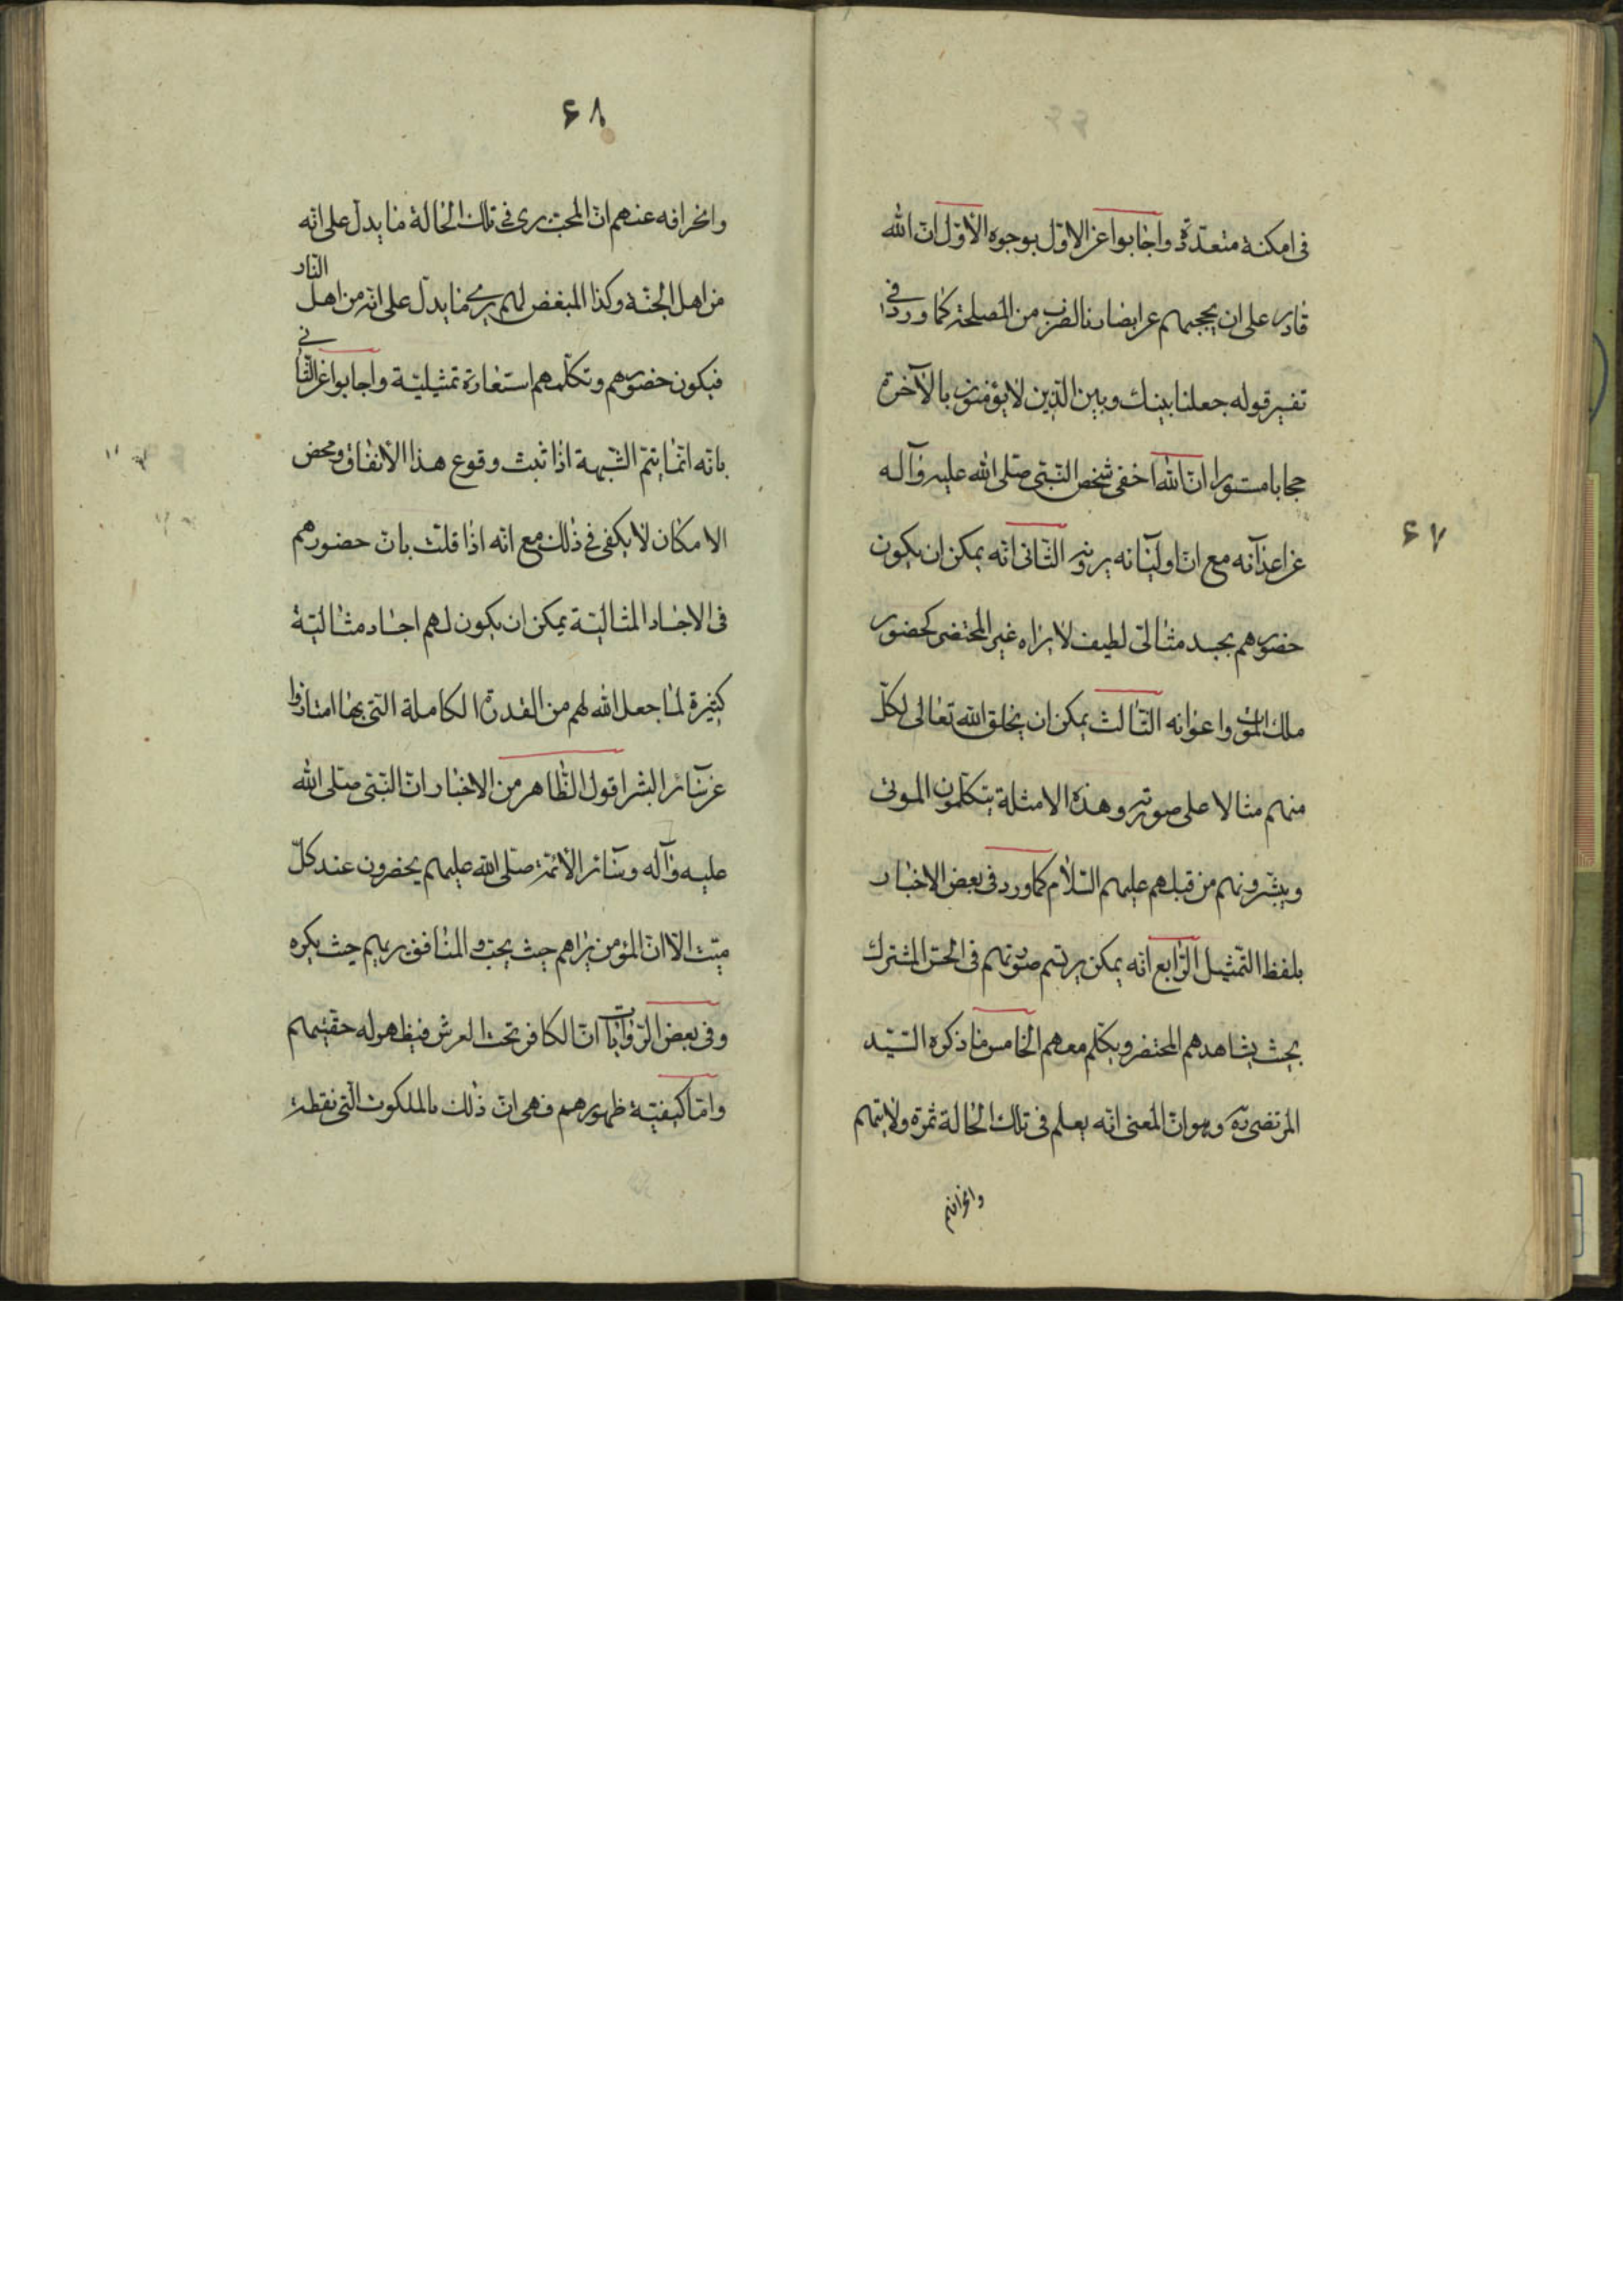 ۶۷
فى امكنة متعدّدة واجابوا عن الاوّل بوجوه الاوّل انّ الله
قادر على ان يحجبهم عن ابصارنا لضرب من المصلحة كما ورد فى
تفسير قوله جعلنا بينك وبين الذين لا يؤمنون بالآخرة
حجابا مستورا انّ الله اخفى شخص النبىّ صلّى الله عليه وآله
عن اعدآئه مع انّ اوليآئه يرونه الثانى انّه يمكن ان يكون
حضورهم بجسد مثالىّ لطيف لا يراه غير المحتضر كحضور
ملك الموت واعوانه الثالث يمكن ان يخلق الله تعالى لكلّ
منهم مثالا على صورته وهذه الامثلة يتكلّمون الموتى
ويبشّرونهم من قبلهم عليهم السّلام كما ورد فى بعض الاخبار
بلفظ التمثيل الرّابع انّه يمكن يرتسم صورتهم فى الحسّ المشترك
بحيث يشاهدهم المحتضر ويكلّم معهم الخامس ما ذكره السّيّد
المرتضى ره وهو انّ المعنى انّه يعلم فى تلك الحالة ثمرة ولايتهم
وانحرافهم
۶۸
وانحرافه عنهم انّ المحبّ يرى فى تلك الحالة ما يدلّ على انّه
من اهل الجنّة وكذا المبغض لهم يرى ما يدلّ على انّه من اهل النّار
فيكون حضورهم وتكلّمهم استعارة تمثيليّة واجابوا عن الثّانى
بانّه انّما يتمّ الشّبهة اذا ثبت وقوع هذا الاتّفاق ومحض
الامكان لا يكفى فى ذلك مع انّه اذا قلت بانّ حضورهم
فى الاجساد المثاليّة يمكن ان يكون لهم اجساد مثاليّة
كثيرة لما جعل الله لهم من القدرة الكاملة التى بها امتازوا
عن سآئر البشر اقول الظّاهر من الاخبار انّ النبىّ صلّى الله
عليه وآله وسآئر الائمّة صلّى الله عليهم يحضرون عند كلّ
ميّت الّا انّ المؤمن يراهم حيث يحبّ والمنافق يريهم حيث يكره
وفى بعض الرّوايات انّ الكافر تحت العرش فيظهر له حقّيتهم
وامّا كيفيّة ظهورهم فهى انّ ذلك بالملكوت الّتى نقطة